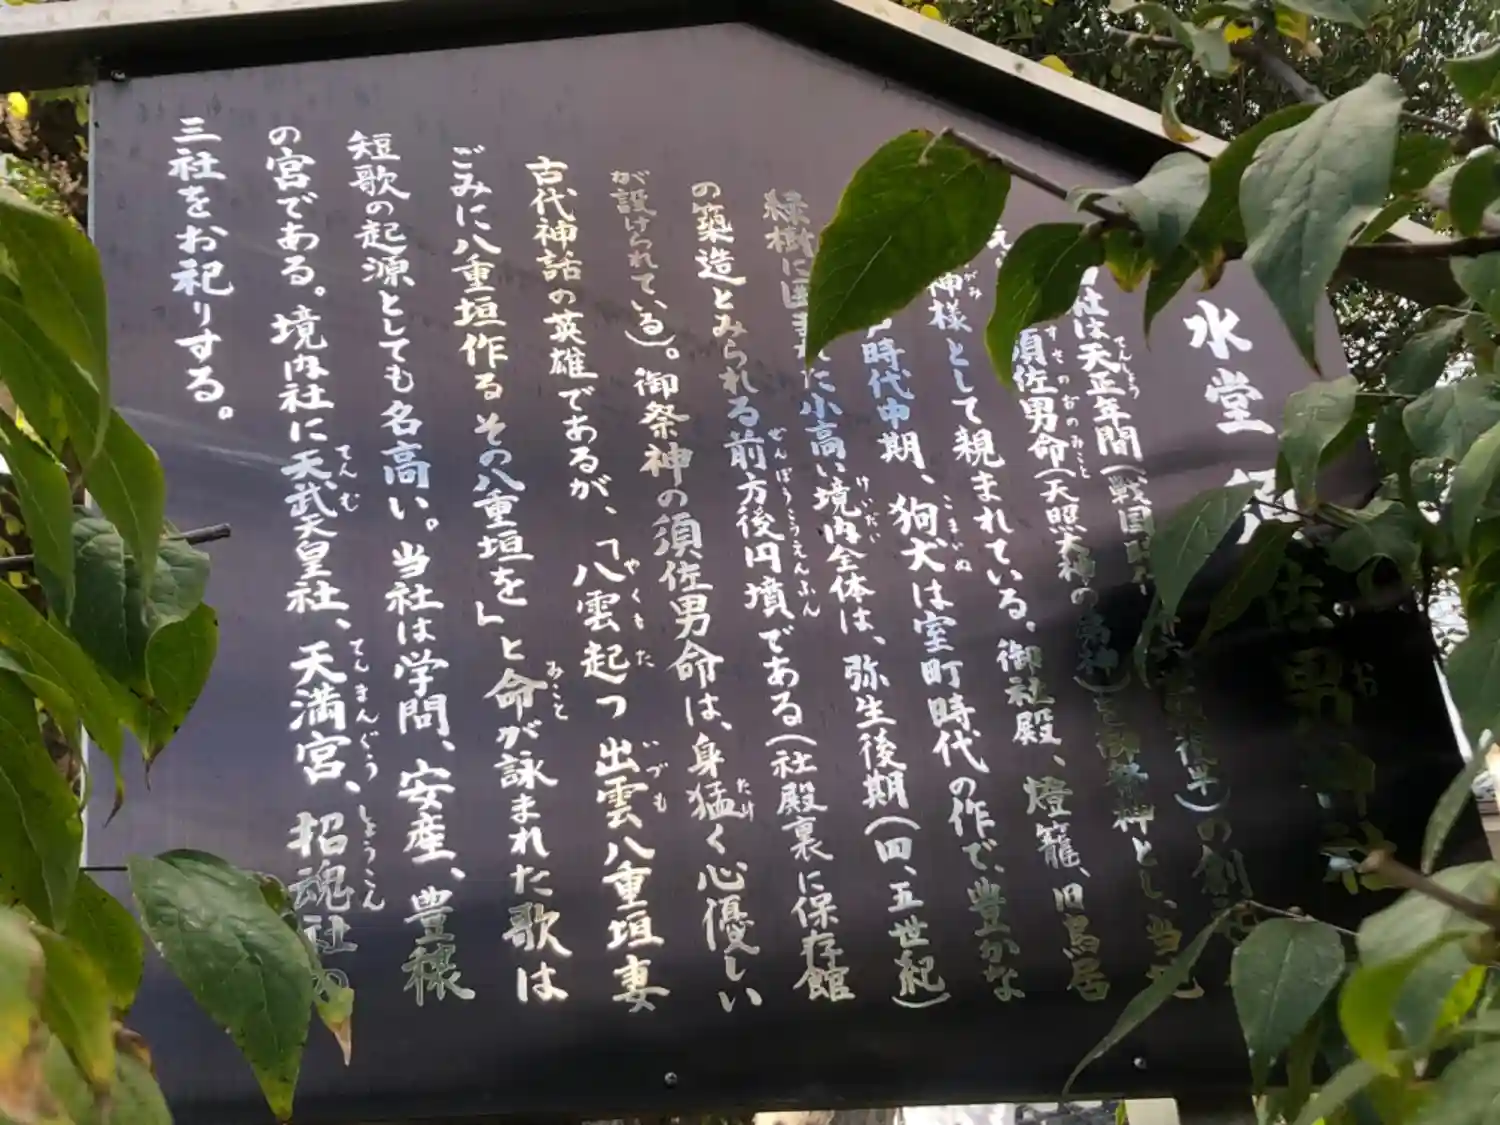 水堂須佐男神社
社は天正年間(戦国 後半)の創
須佐男命(天照大神の弟神)を御祭神とし、当
神様として親まれている。御社殿、燈籠、旧鳥居
時代中期、狗犬は室町時代の作で、豊かな
緑樹に囲まれた小高い境内全体は、弥生後期(四、五世紀)
の築造とみられる前方後円墳である(社殿裏に保存館
が設けられている)。御祭神の須佐男命は、身猛く心優しい
古代神話の英雄であるが、「八雲起つ 出雲八重垣妻
ごみに八重垣作る その八重垣を」と命が詠まれた歌は
短歌の起源としても名高い。当社は学問、安産、豊穣
の宮である。境内社に天武天皇社、天満宮、招魂社の
三社をお祀りする。